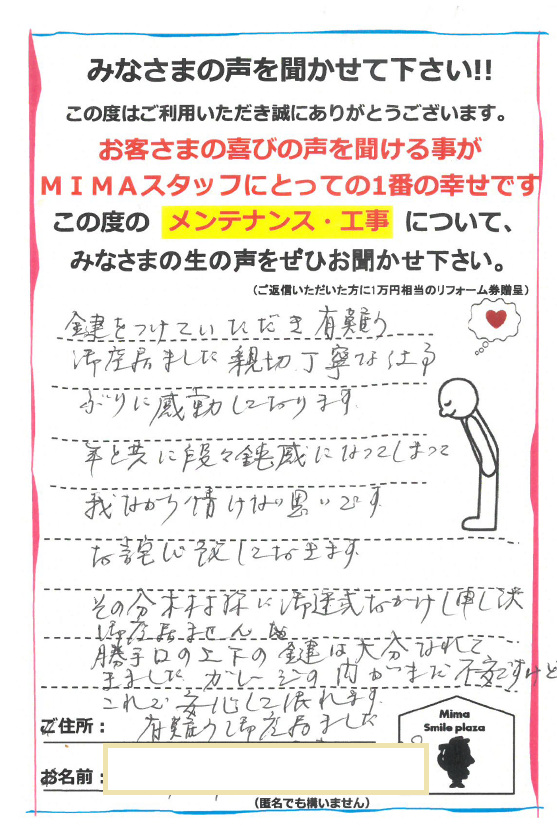 みなさまの声を聞かせて下さい!!
この度はご利用いただき誠にありがとうございます。
お客さまの喜びの声を聞ける事が
MIMAスタッフにとっての1番の幸せです
この度の メンテナンス・工事 について、
みなさまの生の声をぜひお聞かせ下さい。
(ご返信いただいた方に1万円相当のリフォーム券贈呈)
鍵をつけていただき有難う
御座居ました親切丁寧な仕事
ぶりに感動しております
年と共に段々鈍感になってしまって
我ながら情けない思いです
お
その分木村様に御迷惑おかけし申し訳
御座居ません
勝手口の上下の鍵は大分なれて
きました ガレージの内がまだ不安ですけど
これで安心して眠れます
有難う御座居ました
ご住所：
お名前：
(匿名でも構いません)
Mima
Smile plaza